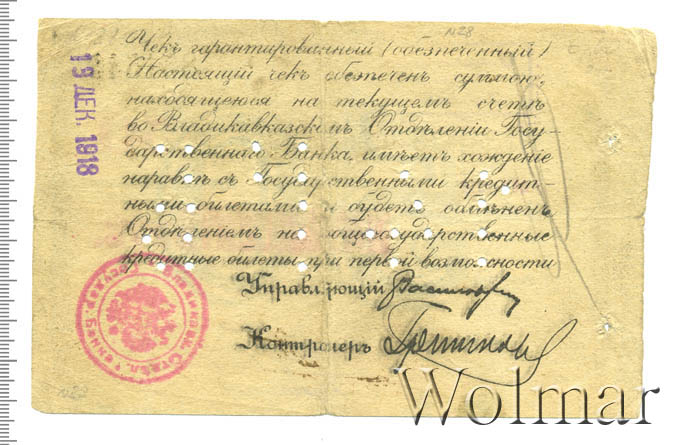 №28
Чекъ гарантированный (обезпеченный)
Настоящій чекъ обезпеченъ суммою,
находящеюся на текущемъ счетѣ
во Владикавказскомъ Отдѣленіи Госу-
дарственнаго Банка, имѣетъ хожденіе
наравнѣ съ Государственными кредит-
ными билетами и будетъ обмѣненъ
Отдѣленіемъ на общегосударственные
кредитные билеты при первой возможности
Управляющій
Контролеръ
19 ДЕК. 1918
Wolmar